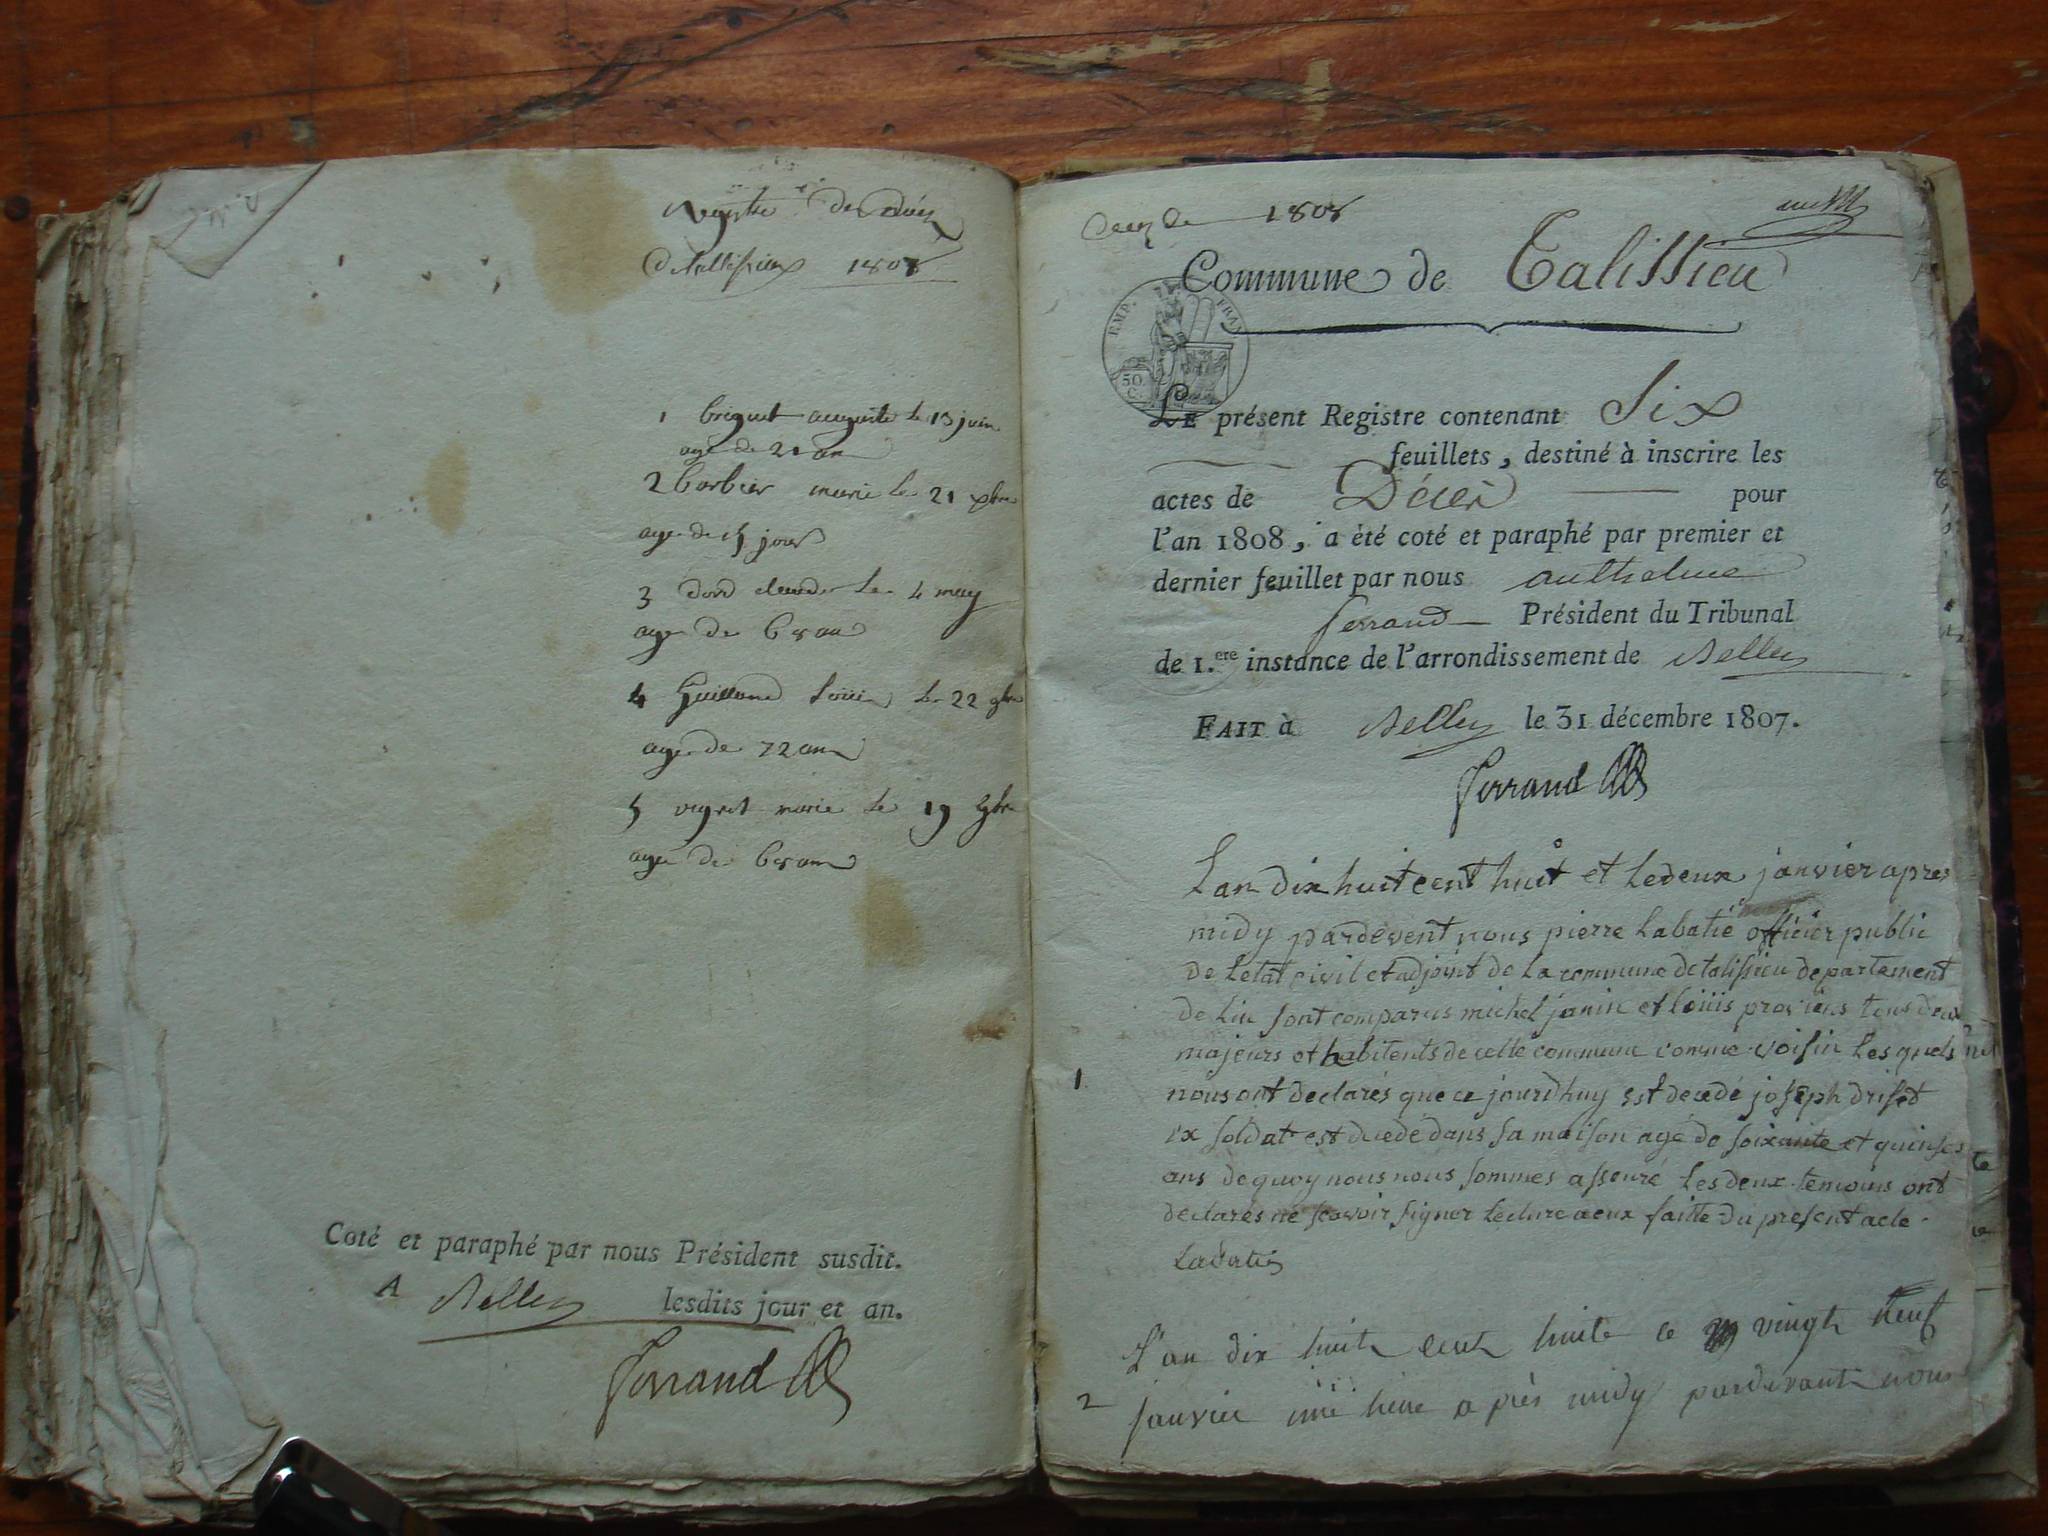 Registre des décès
de tallissieux 1808
1 briguet auguste le 13 juin
agé de 21 an
2 barbier marie le 21 xbre
agé de 15 jour
3 claude le 4 may
age de 68 an
4 Guillaume Louis le 22 9bre
age de 72 an
5 marie le 19 9bre
agée de 68 an
Coté et paraphé par nous Président susdit.
A Belley lesdits jour et an.
Ferrand
1808
Commune de Talissieu
EMP. FRAN.
50 C.
LE présent Registre contenant Six
feuillets, destiné à inscrire les
actes de Décès pour
l'an 1808, a été coté et paraphé par premier et
dernier feuillet par nous anthelme
ferrand Président du Tribunal
de 1.ere instance de l'arrondissement de Belley
FAIT à Belley le 31 décembre 1807.
Ferrand
Lan dix huit cent huit et le deux janvier apres
midy pardevent nous pierre Labatie officier public
de Letat civil et adjoint de La commune de talissieu departement
de Lin sont comparus michel janin et Louis tous deux
majeurs et habitents de cette commune comme voisin Les quels
1 nous ont declarés que ce jourdhuy est decedé joseph driset
ex soldat est decedé dans sa maison agé de soixante et quinses
ans de quoy nous nous sommes asseuré Les deux temoins ont
declarés ne scavoir signer Lecture a eux faitte du present acte.
Labatie
L'an dix huit cent huit ce vingt neuf
2 janvier une heure après midy pardevant nous